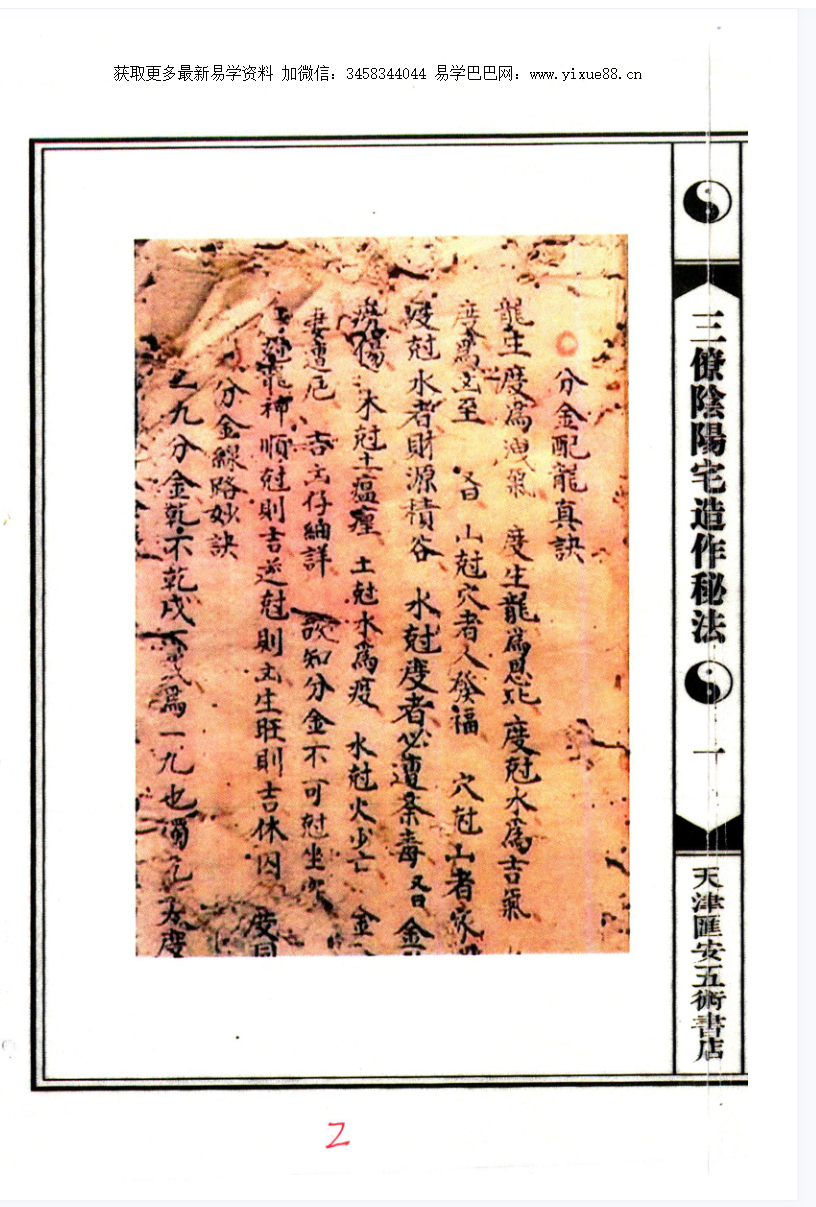 获取更多最新易学资料 加微信：3458344044 易学巴巴网：www.yixue88.cn
三僚陰陽宅造作秘法
一
天津匯安五術書店
分金配龍真訣
龍生度為洩氣 度生龍為恩 度尅水為吉氣
度 為 至 又曰 山尅穴者人發福 穴尅山者家
尅水者財源積谷 水尅度者必遭 毒 又曰 金
傷 木尅土瘟瘟 土尅水為疫 水尅火少亡 金
妻遭厄 吉 仔細詳 故知分金不可尅坐穴
龍神順尅則吉逆尅則 生旺則吉休囚 度同
分金線路妙訣
九分金乾不乾戌 為一九也
2